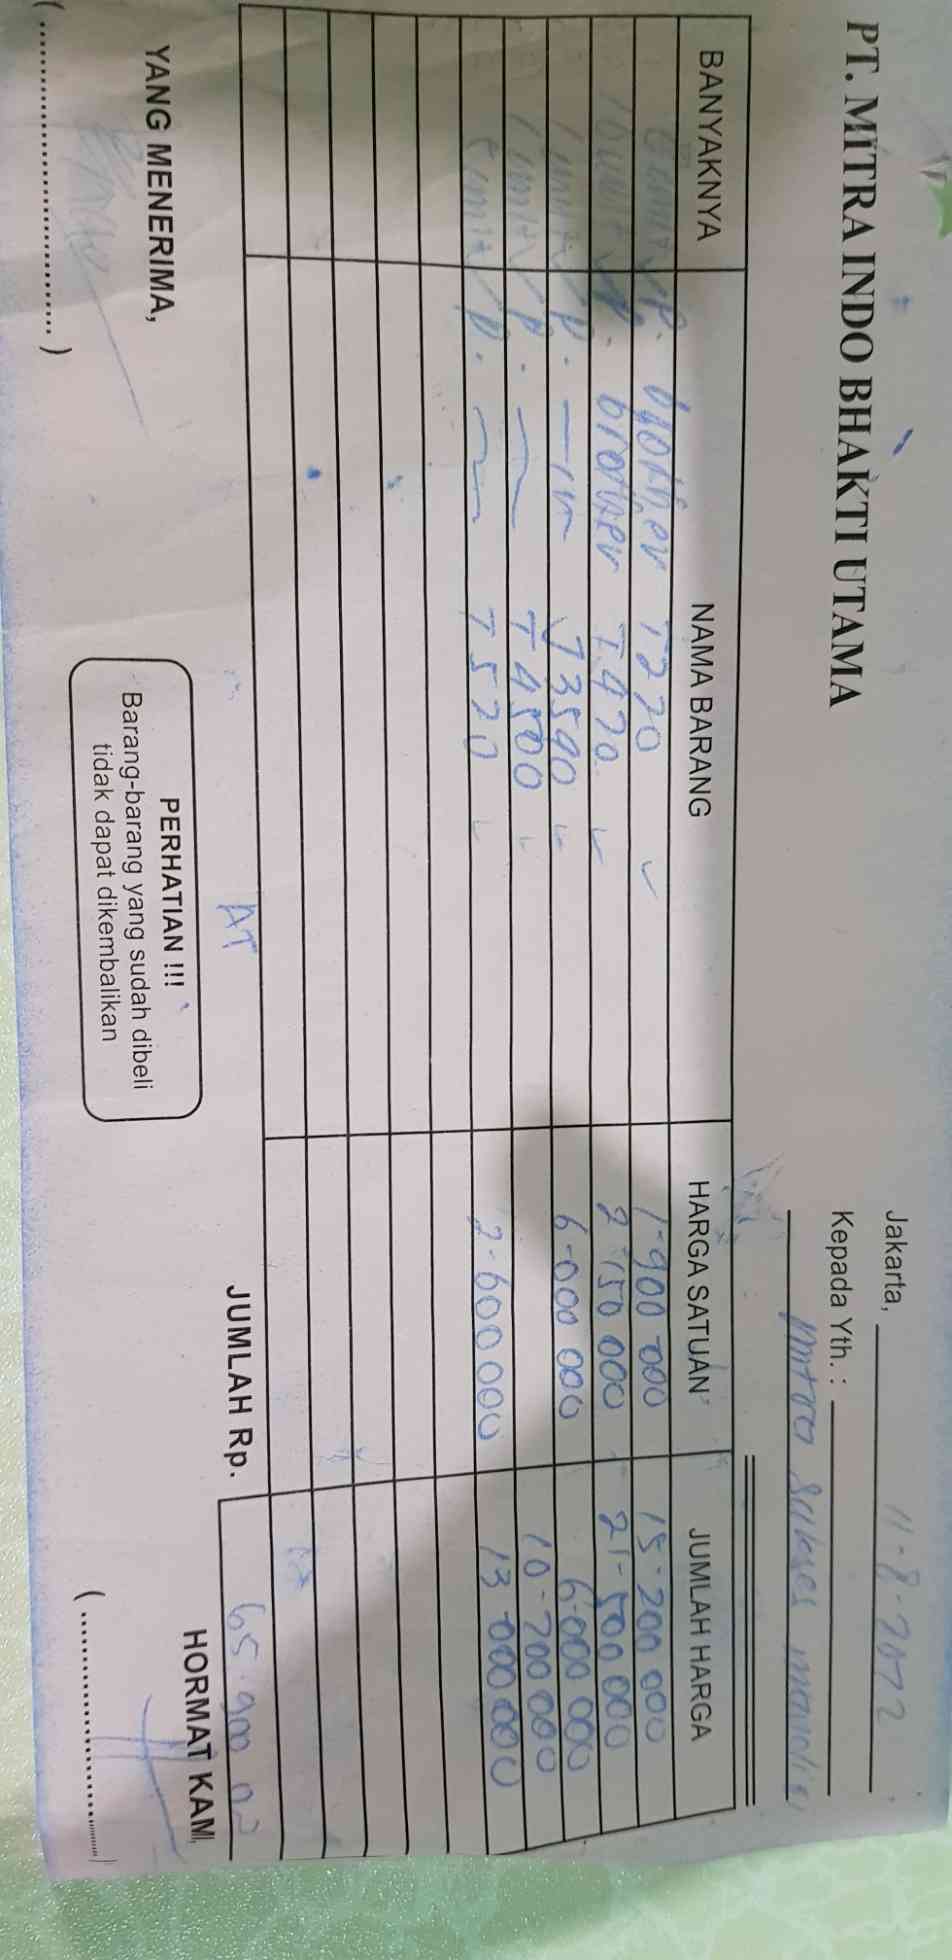 PT. MITRA INDO BHAKTI UTAMA
Jakarta, 11-8-2022
Kepada Yth. :
mitra sukses mandiri
BANYAKNYA NAMA BARANG HARGA SATUAN JUMLAH HARGA
P. brother T220 1-900-000 15-200 000
brother T.420 2-150 000 21-500 000
1 unit P. J3540 6-000 000 6-000 000
1 unit P. T4500 10-700 000
5 unit P. T520 2-600 000 13 000 000
AT
JUMLAH Rp. 65.900 00
YANG MENERIMA,
PERHATIAN !!!
Barang-barang yang sudah dibeli
tidak dapat dikembalikan
HORMAT KAMI,
(................................)
(................................)